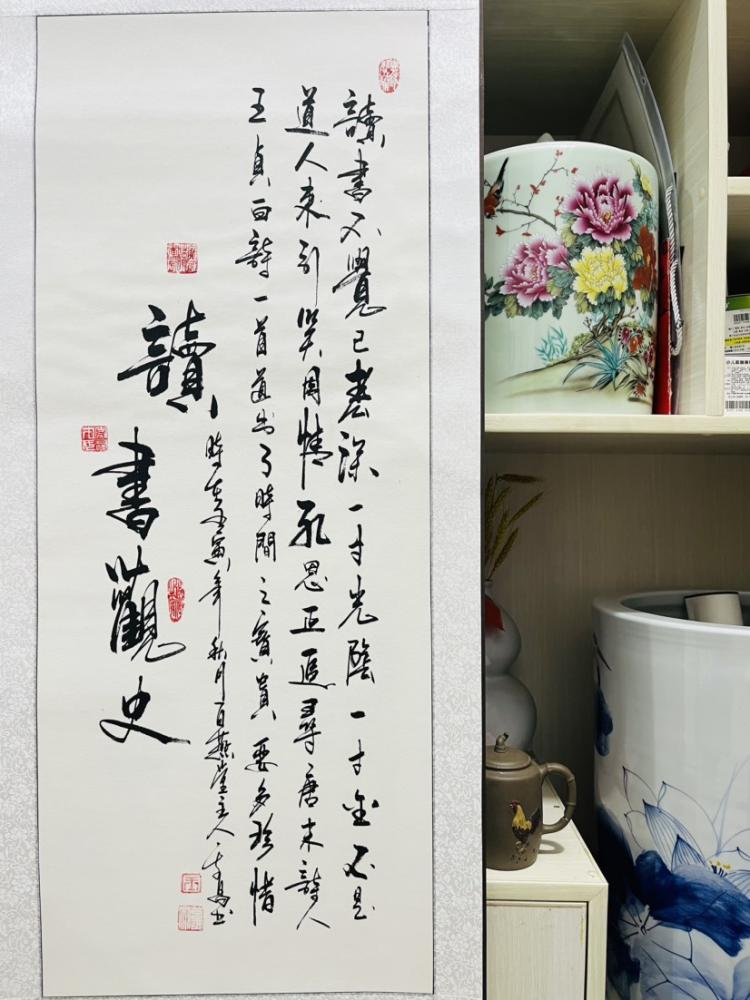 讀書不覺已春深一寸光陰一寸金不是
道人來引笑周情孔思正追尋唐末詩人
王貞白詩一首道出了時間之寶貴要多珍惜
時在壬寅年秋月百燕堂主人
書
讀書觀史